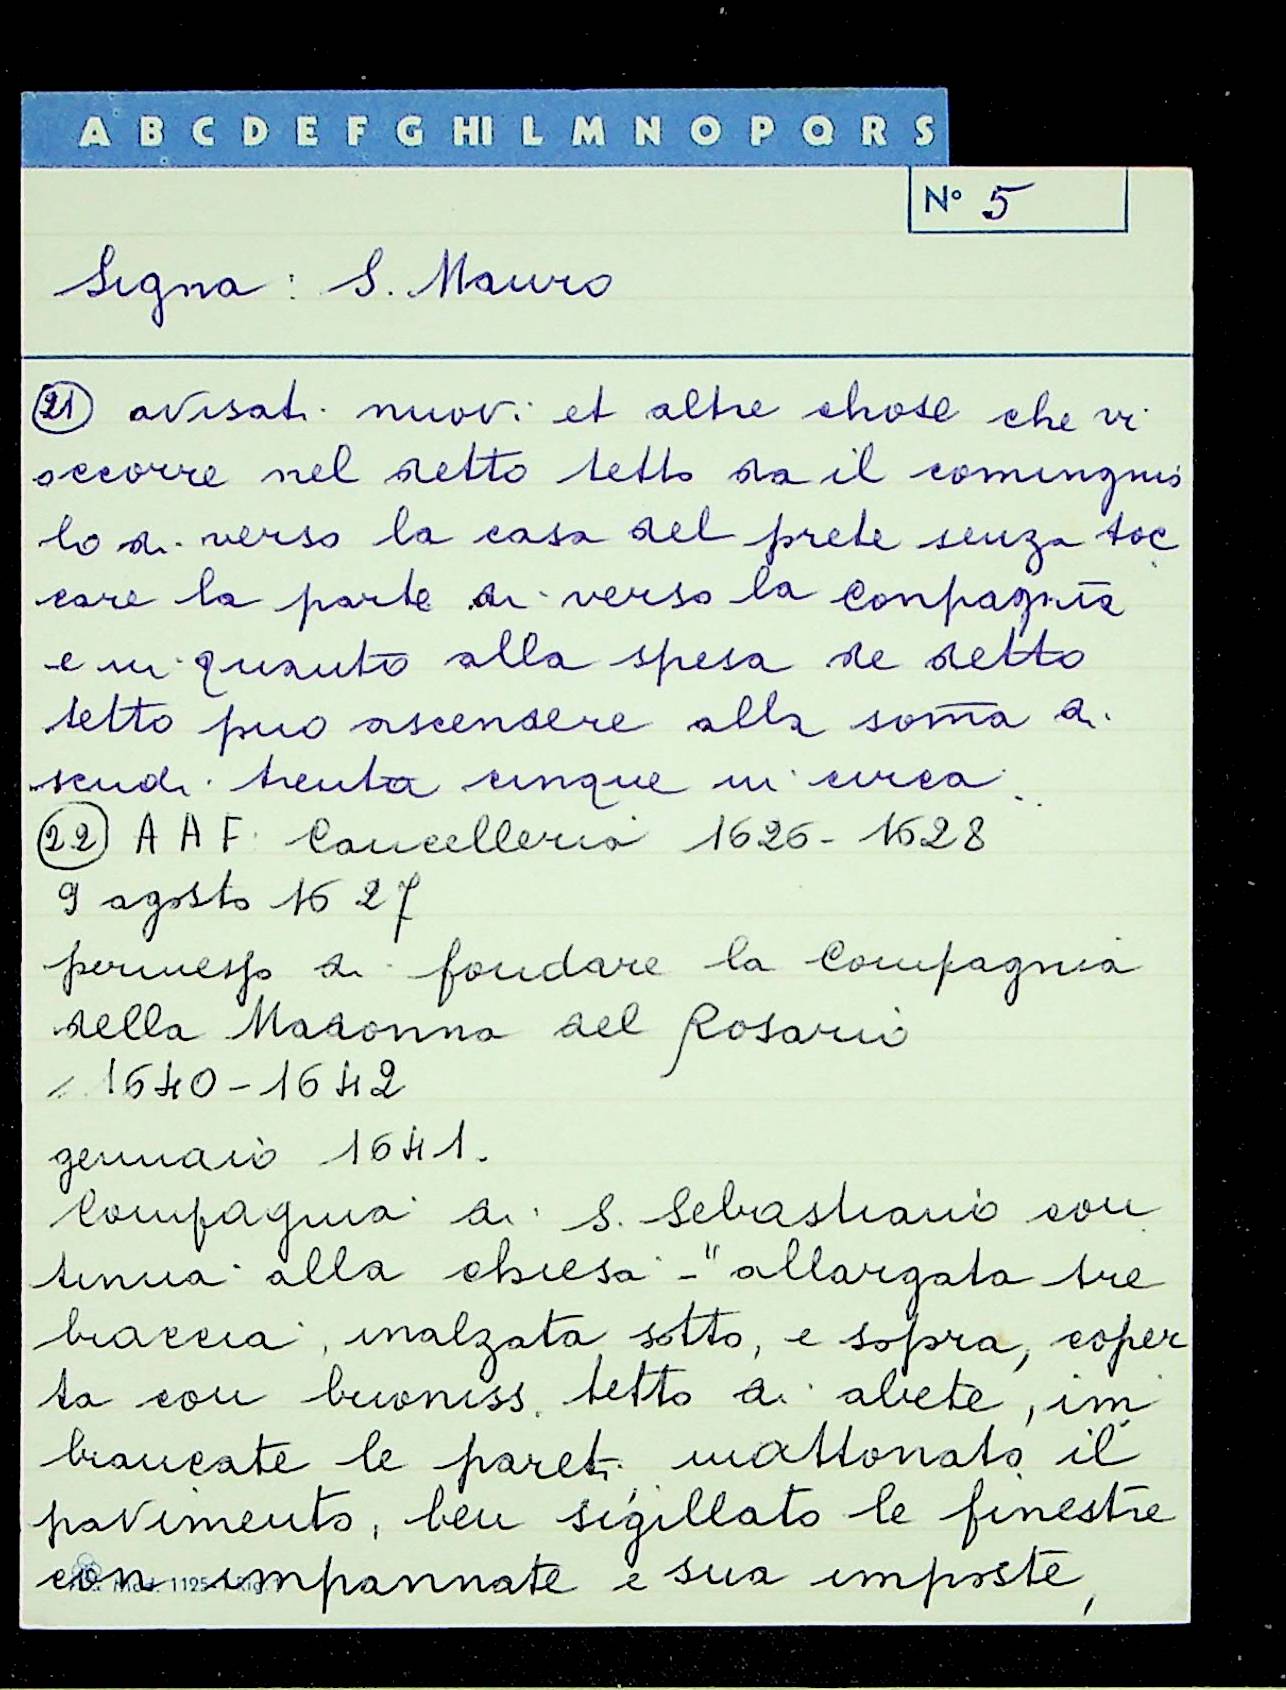 A B C D E F G HI L M N O P Q R S
N° 5
Signa : S. Mauro
(21) avisati nuovi et altre chose che vi
occorre nel detto tetto da il comingnio
lo di verso la casa del prete senza toc
care la parte di verso la Conpagnia
e in quanto alla spesa de detto
tetto puo ascendere alla som̄a di
scudi trenta cinque in circa
(22) A A F Cancelleria 1626 - 1628
9 agosto 1627
permesso di fondare la Compagnia
della Madonna del Rosario
1640 - 1642
gennaio 1641.
Compagnia di S. Sebastiano con
tinua alla chiesa - "allargata tre
braccia, inalzata sotto, e sopra, coper
ta con buoniss. tetto di abete, im
brancate le pareti, mattonato il
pavimento, ben sigillato le finestre
con impannate e sua imposte,